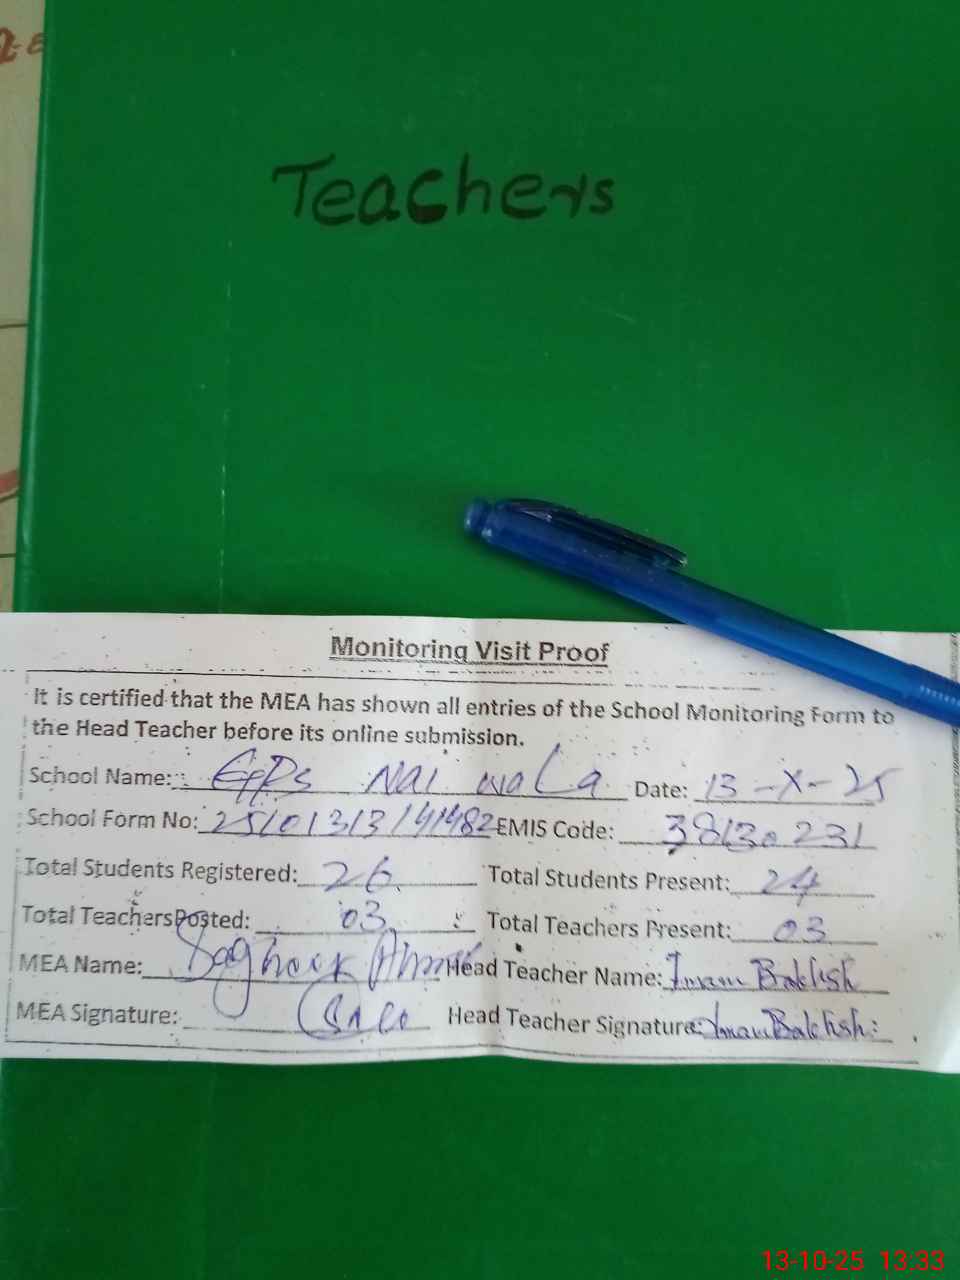 Teachers
Monitoring Visit Proof
It is certified that the MEA has shown all entries of the School Monitoring Form to
the Head Teacher before its online submission.
School Name: GPS Nai wala Date: 13-X-25
School Form No: EMIS Code: 38130231
Total Students Registered: 26 Total Students Present: 24
Total Teachers Posted: 03 Total Teachers Present: 03
MEA Name: Head Teacher Name: Imam Bakhsh
MEA Signature: Head Teacher Signature: Imam Bakhsh
13-10-25 13:33